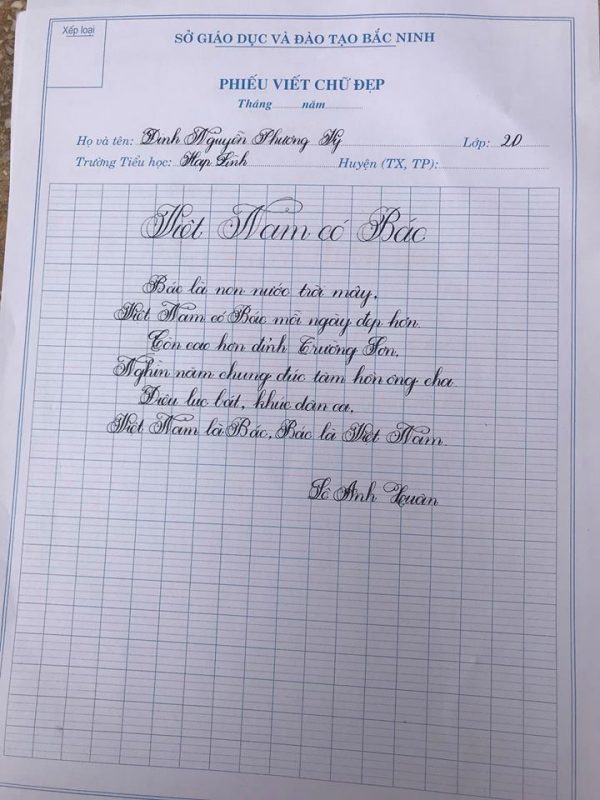 Xếp loại
SỞ GIÁO DỤC VÀ ĐÀO TẠO BẮC NINH
PHIẾU VIẾT CHỮ ĐẸP
Tháng.........năm............
Họ và tên: Đinh Nguyễn Phương Vy Lớp: 2D
Trường Tiểu học: Hạp Lĩnh Huyện (TX, TP):
Việt Nam có Bác
Bác là non nước trời mây,
Việt Nam có Bác mỗi ngày đẹp hơn
Còn cao hơn đỉnh Trường Sơn,
Nghìn năm chung đúc tâm hồn ông cha
Điệu lục bát, khúc dân ca,
Việt Nam là Bác, Bác là Việt Nam.
Lê Anh Xuân